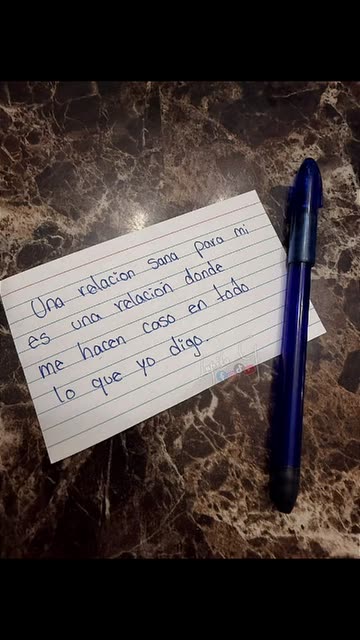 Una relacion sana para mi
es una relación donde
me hacen caso en todo
lo que yo digo.